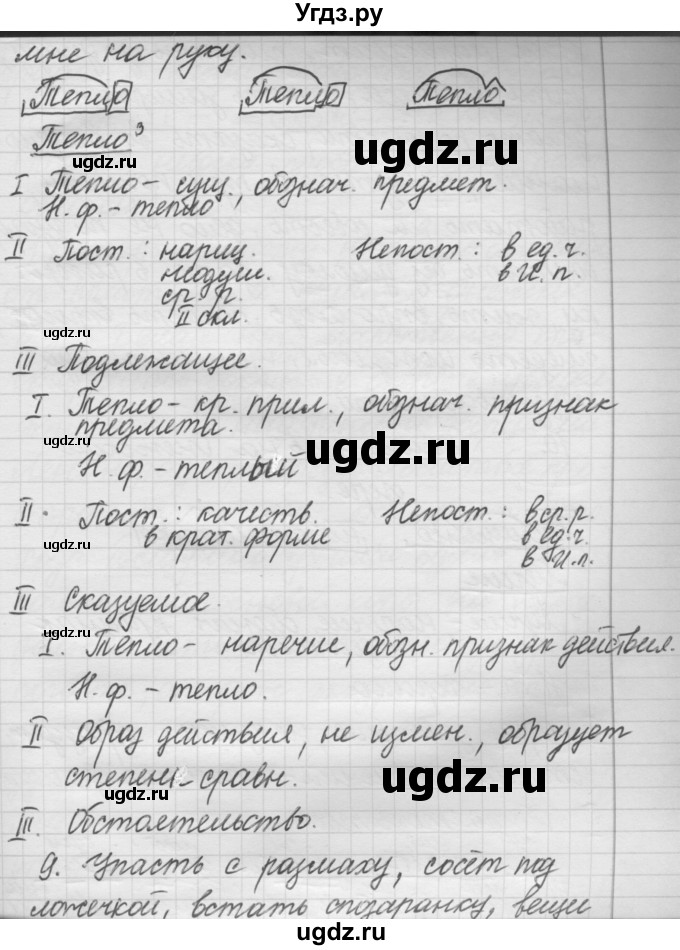 Угдз.ру
мне на руку.
Тепло Тепло Тепло
Тепло³
ugdz.ru ugdz.ru
I Тепло - сущ., обознач. предмет.
Н.ф. - тепло
II Пост.: нариц. Непост.: в ед.ч.
неодуш. в И.п.
ср. р.
II скл.
ugdz.ru
III Подлежащее.
I. Тепло - кр. прил., обознач. признак
предмета.
ugdz.ru ugdz.ru
Н.ф. - теплый
II. Пост.: качеств. Непост.: в ср.р.
в крат. форме в ед.ч.
ugdz.ru в И.п.
III Сказуемое.
I. Тепло - наречие, обозн. признак действия.
ugdz.ru ugdz.ru
Н.ф. - тепло.
II Образ действия, не измен., образует
степени сравн.
ugdz.ru ugdz.ru
III. Обстоятельство.
9. Упасть с размаху, сосёт под
ложечкой, встать спозаранку, вещи
ugdz.ru